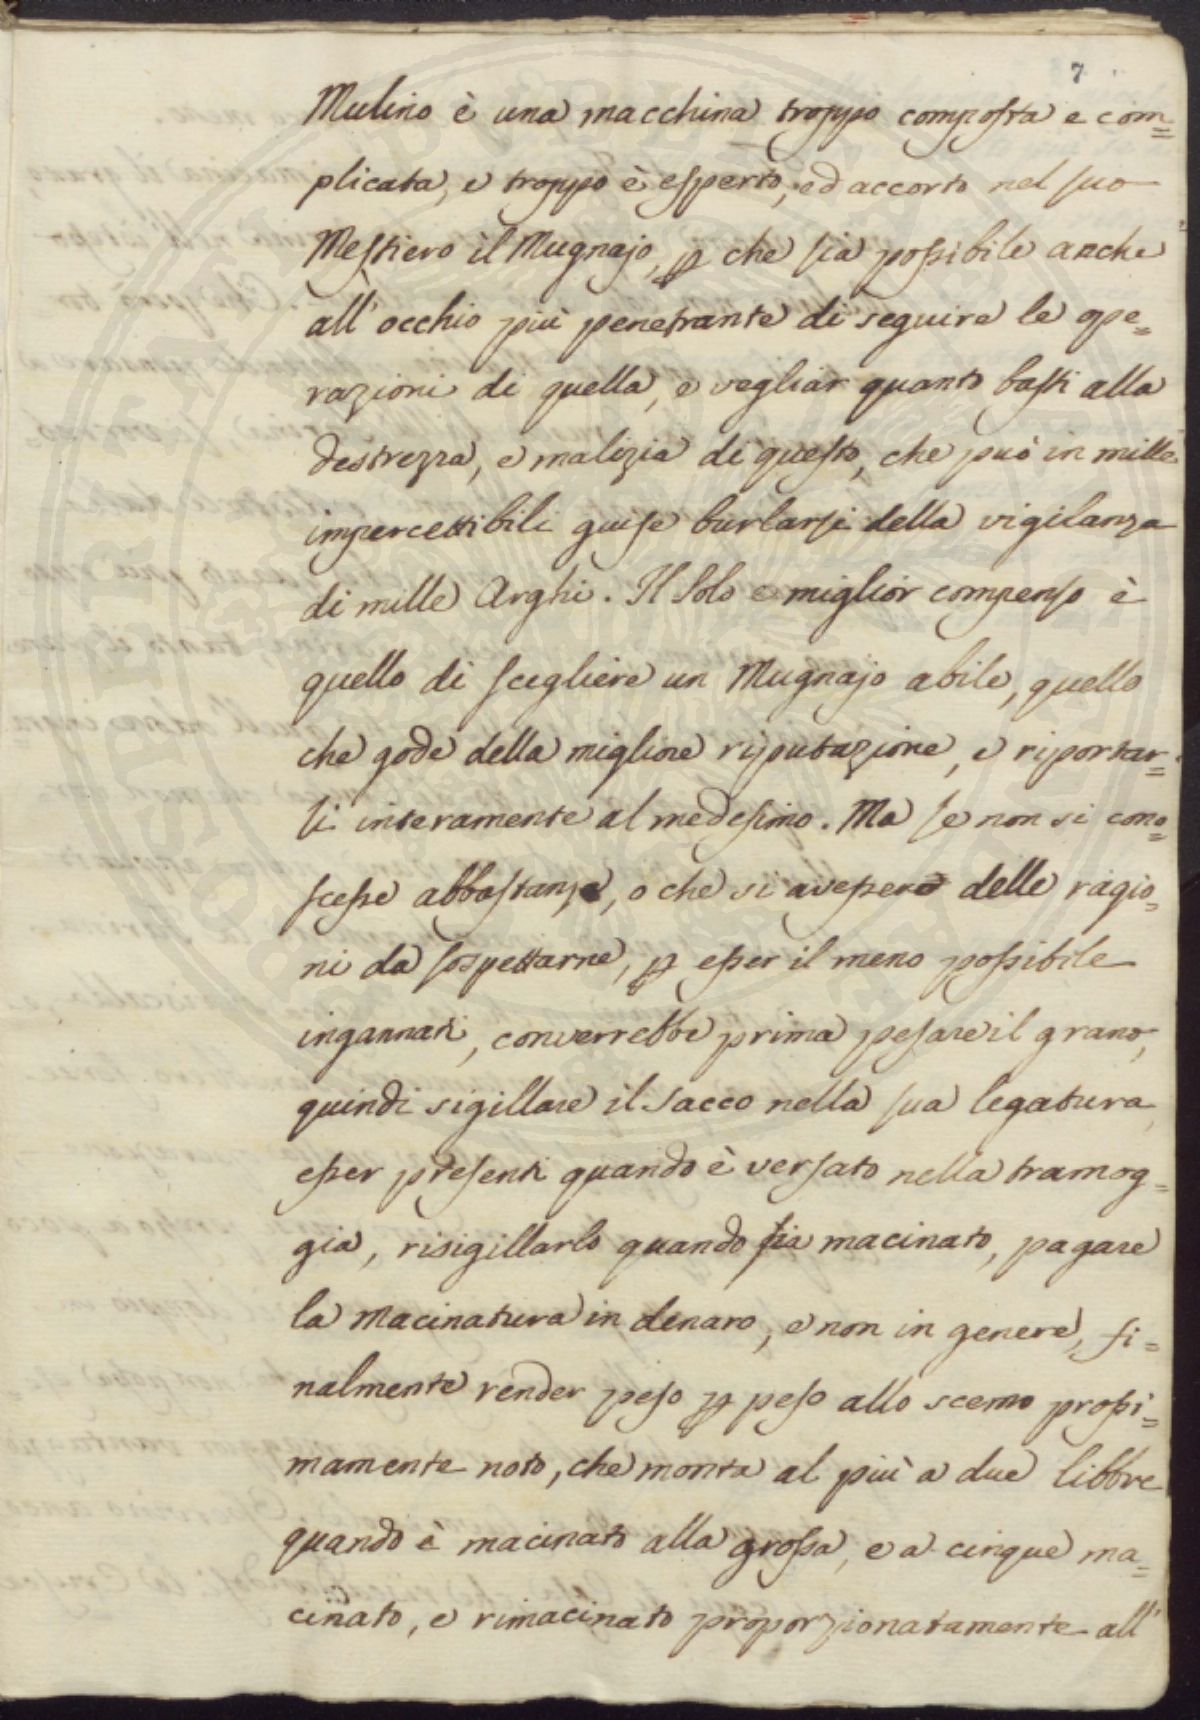 7
Mulino è una macchina troppo composta e com=
plicata, e troppo è esperto, ed accorto nel suo
Mestiero il Mugnajo, p che sia possibile anche
all'occhio più penetrante di seguire le ope=
razioni di quella, e vegliar quanto basti alla
destrezza, e malizia di questo, che può in mille
impercettibili guise burlarsi della vigilanza
di mille Arghi. Il solo e miglior compenso è
quello di scegliere un Mugnajo abile, quello
che gode della migliore riputazione, e riportar=
si interamente al medesimo. Ma se non si cono=
scesse abbastanza, o che si avessero delle ragio=
ni da sospettarne, p esser il meno possibile
ingannati, converrebbe prima pesare il grano,
quindi sigillare il sacco nella sua legatura,
esser presenti quando è versato nella tramog=
gia, risigillarlo quando sia macinato, pagare
la macinatura in denaro, e non in genere, fi=
nalmente render peso p peso allo scemo prossi=
mamente noto, che monta al più a due libbre
quando è macinato alla grossa, e a cinque ma=
cinato, e rimacinato proporzionatamente all'